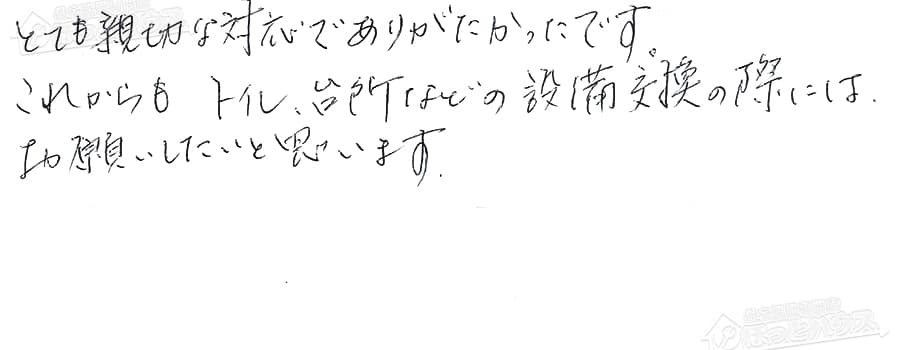 とても親切な対応でありがたかったです。
これからも トイレ、台所などの設備交換の際には、
お願いしたいと思います。